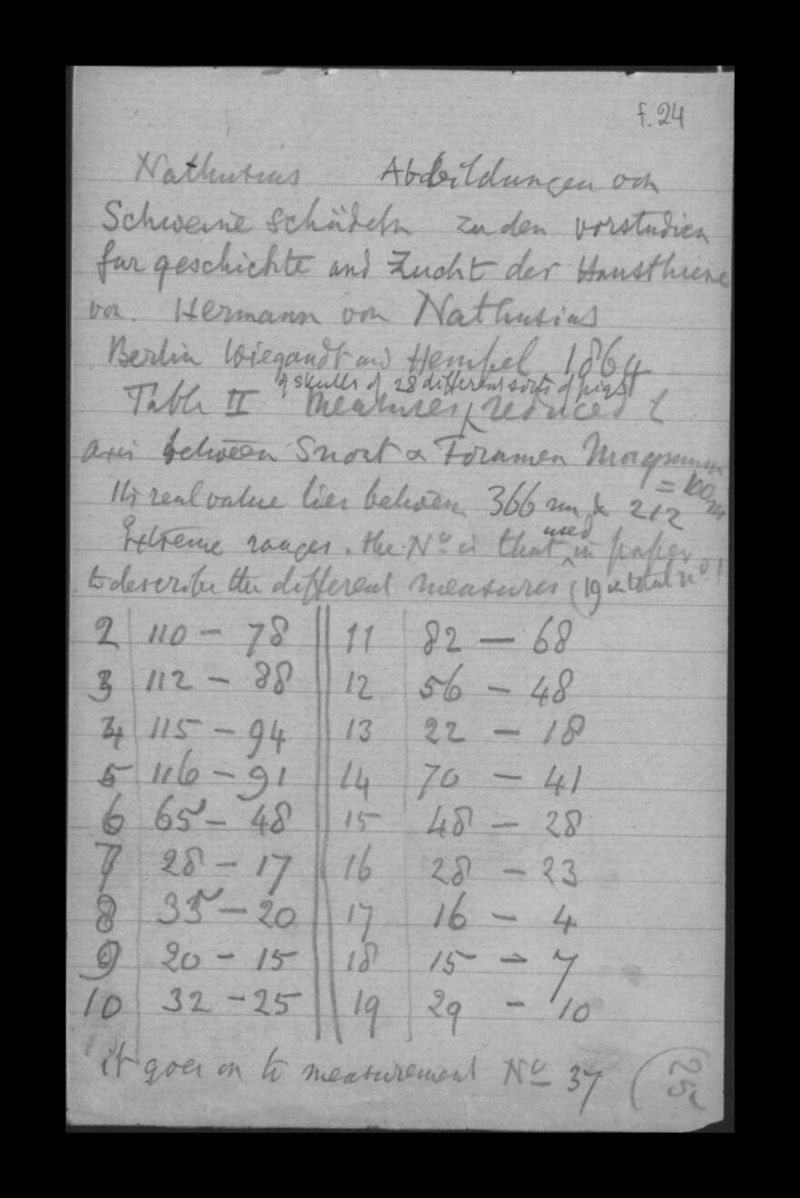 f. 24
Nathusius Abbildungen von
Schweine schädeln zu den vorstudien
fur geschichte und Zucht der Hausthiere
von. Hermann von Nathusius
Berlin Wiegandt und Hempel 1864
of skulls of 28 different sorts of pigs
Table II Measures reduced
axis between Snout & Foramen Magnum
= 100
Its real value lies between 366 mm & 212
Extreme ranges. the No is that used in paper
to describe the different measures (19 total no)
2 110 – 78 11 82 – 68
3 112 – 88 12 56 – 48
4 115 – 94 13 22 – 18
5 116 – 91 14 70 – 41
6 65 – 48 15 48 – 28
7 28 – 17 16 28 – 23
8 35 – 20 17 16 – 4
9 20 – 15 18 15 – 7
10 32 – 25 19 29 – 10
it goes on to measurement No 37
25